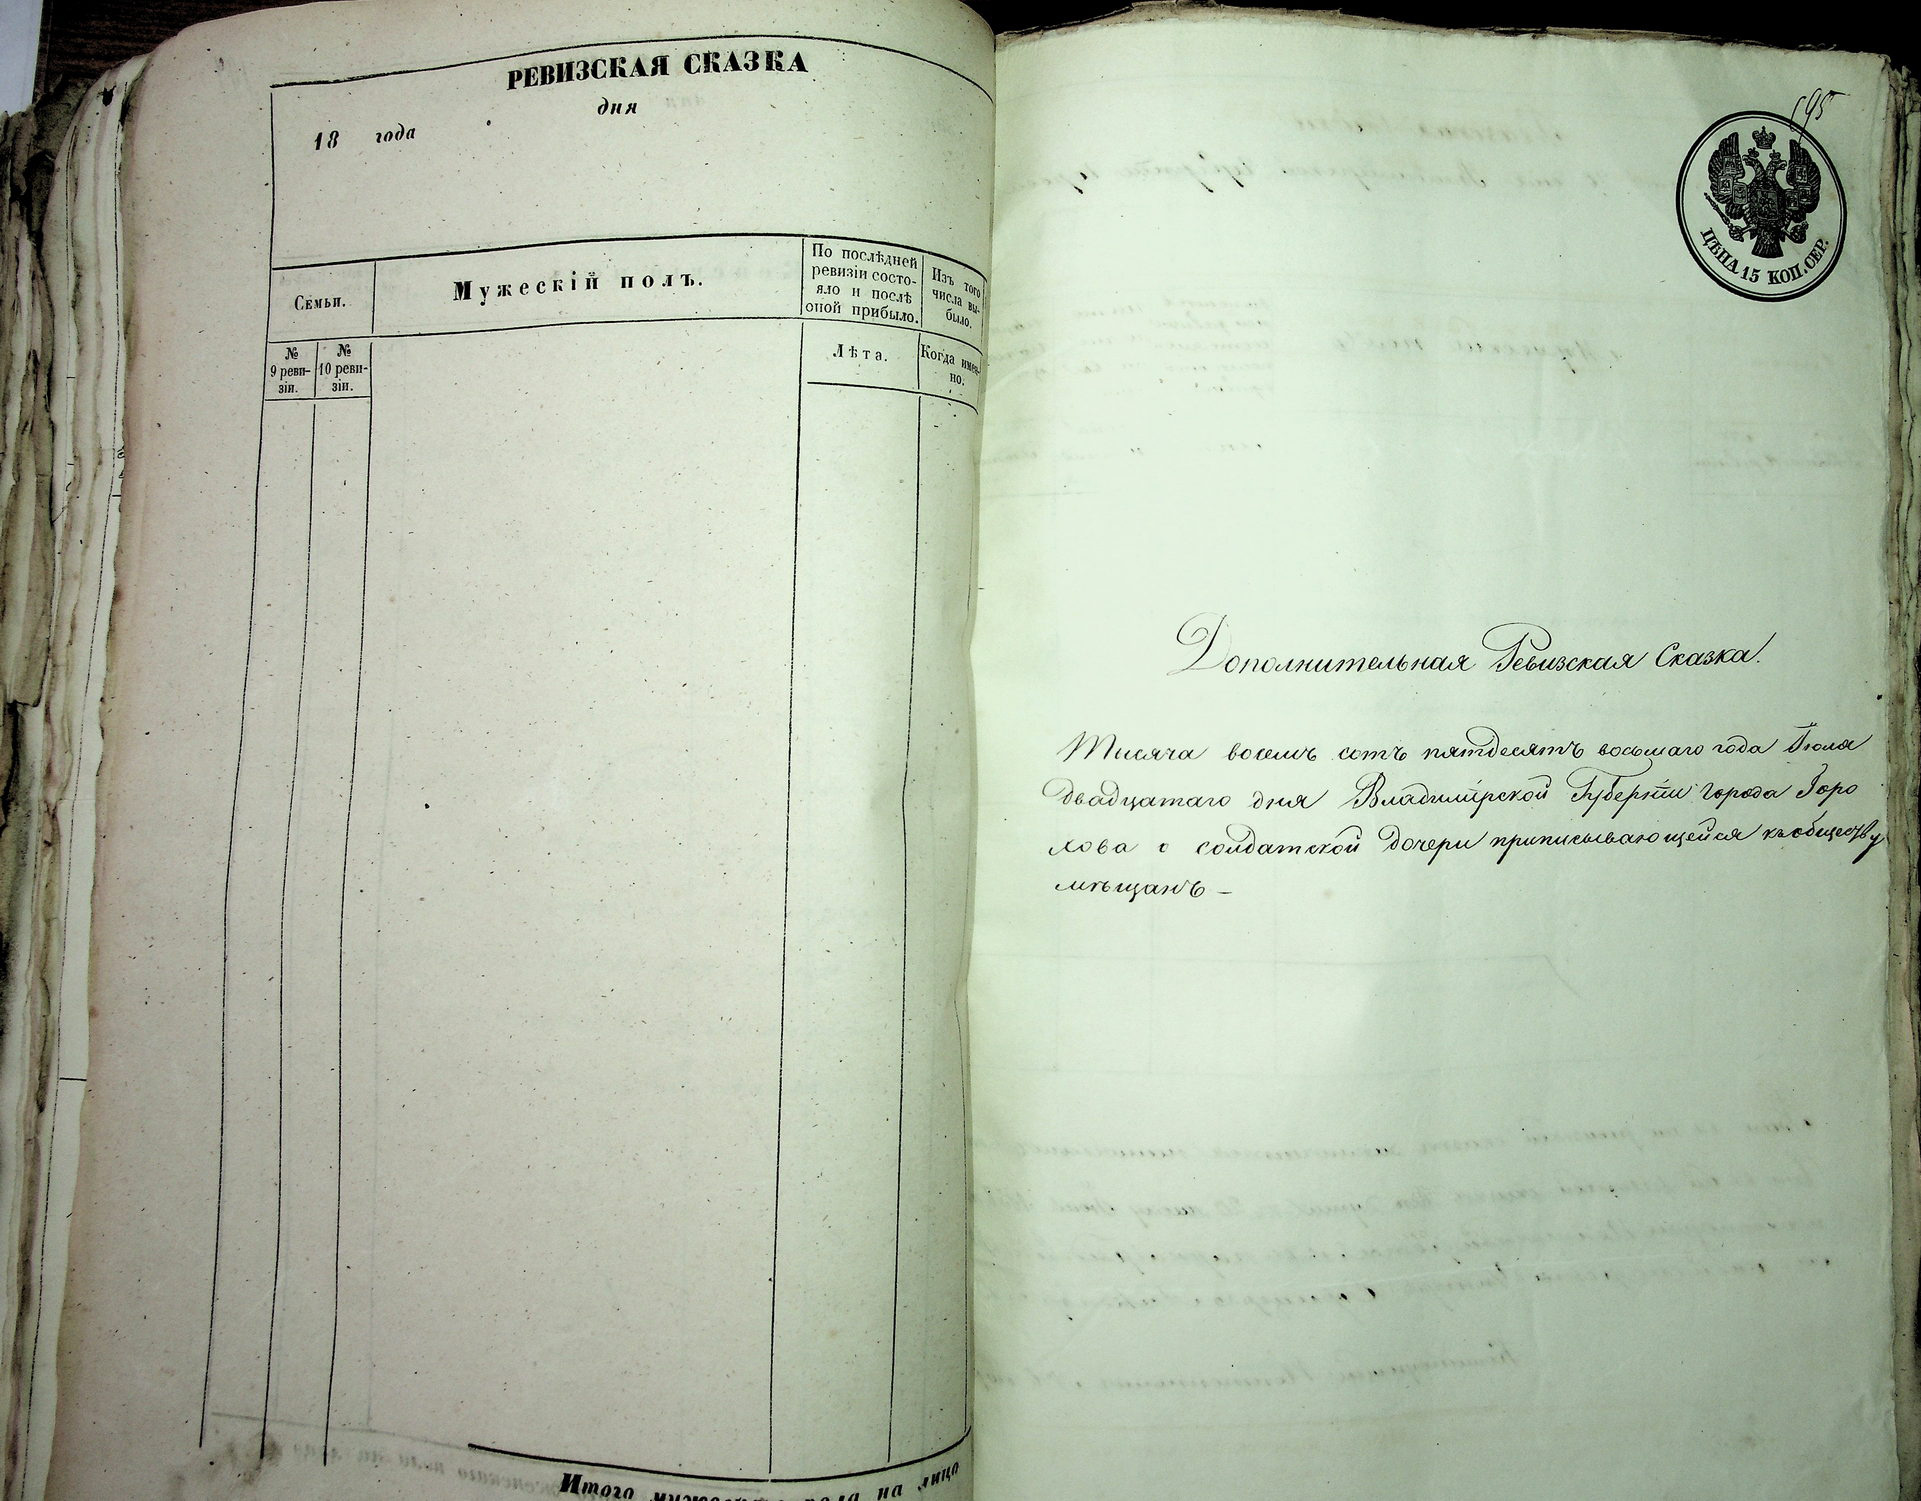 РЕВИЗСКАЯ СКАЗКА
дня
18 года
Семьи.
Мужескій полъ.
По послѣдней
ревизіи состо-
яло и послѣ
оной прибыло.
Изъ того
числа вы-
было.
№
9 реви-
зіи.
№
10 реви-
зіи.
Лѣта.
Когда имен-
но.
Итого мужеска пола на лицо
695
ЦѢНА 15 КОП. СЕР.
Дополнительная Ревизская Сказка.
Тысяча восемь сотъ пятдесятъ восьмаго года Іюля
двадцатаго дня Владимірской Губерніи города Горо
хова о солдатской дочери приписывающейся къ обществу
мѣщанъ –